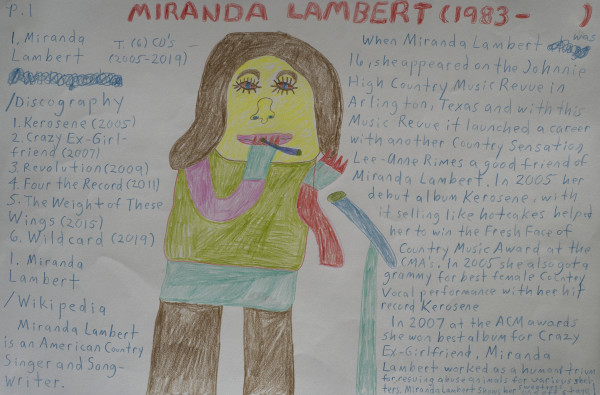 P.1
MIRANDA LAMBERT (1983- )
1. Miranda
Lambert
T. (6) CO's
(2005-2019)
/Discography
1. Kerosene (2005)
2. Crazy Ex-Girl-
friend (2007)
3. Revolution (2009)
4. Four the Record (2011)
5. The Weight of These
Wings (2015)
6. Wildcard (2019)
1. Miranda
Lambert
/Wikipedia
Miranda Lambert
is an American Country
Singer and Song-
writer.
When Miranda Lambert was
16, she appeared on the Johnnie
High Country Music Revue in
Arlington, Texas and with this
Music Revue it launched a career
with another Country Sensation
Lee-Anne Rimes a good friend of
Miranda Lambert. In 2005 her
debut album Kerosene, with
it selling like hotcakes helped
her to win the Fresh Face of
Country Music Award at the
CMA's. In 2005 she also got a
grammy for best female Country
Vocal performance with her hit
record Kerosene
In 2007 at the ACM awards
she won best album for Crazy
Ex-Girlfriend. Miranda
Lambert worked as a humantrian
for resuing abuse animals for various shel-
ters. Miranda Lambert shows her